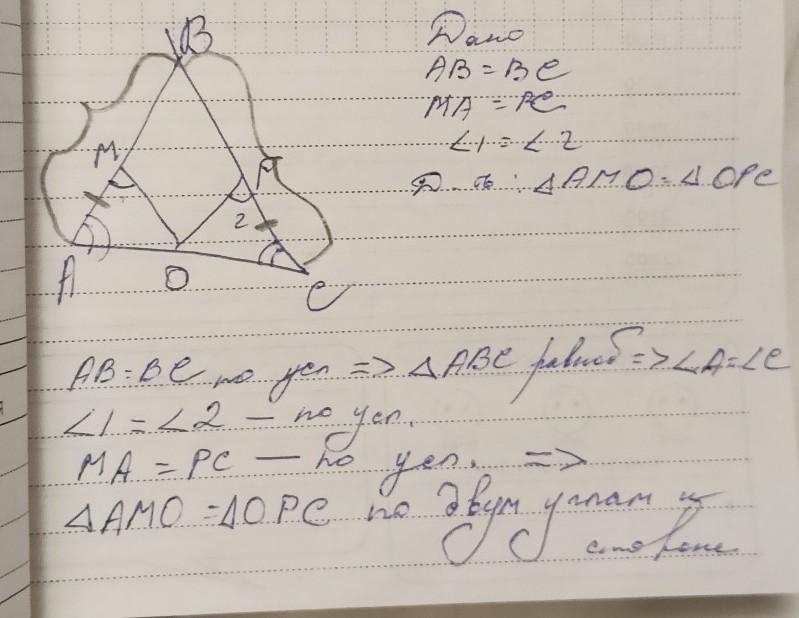 B
M
P
2
A
O
C
Дано
AB = BC
MA = PC
∠1 = ∠2
Д-ть: △AMO = △OPC
AB = BC по усл => △ABC равноб => ∠A = ∠C
∠1 = ∠2 — по усл.
MA = PC — по усл. =>
△AMO = △OPC по двум углам и
стороне